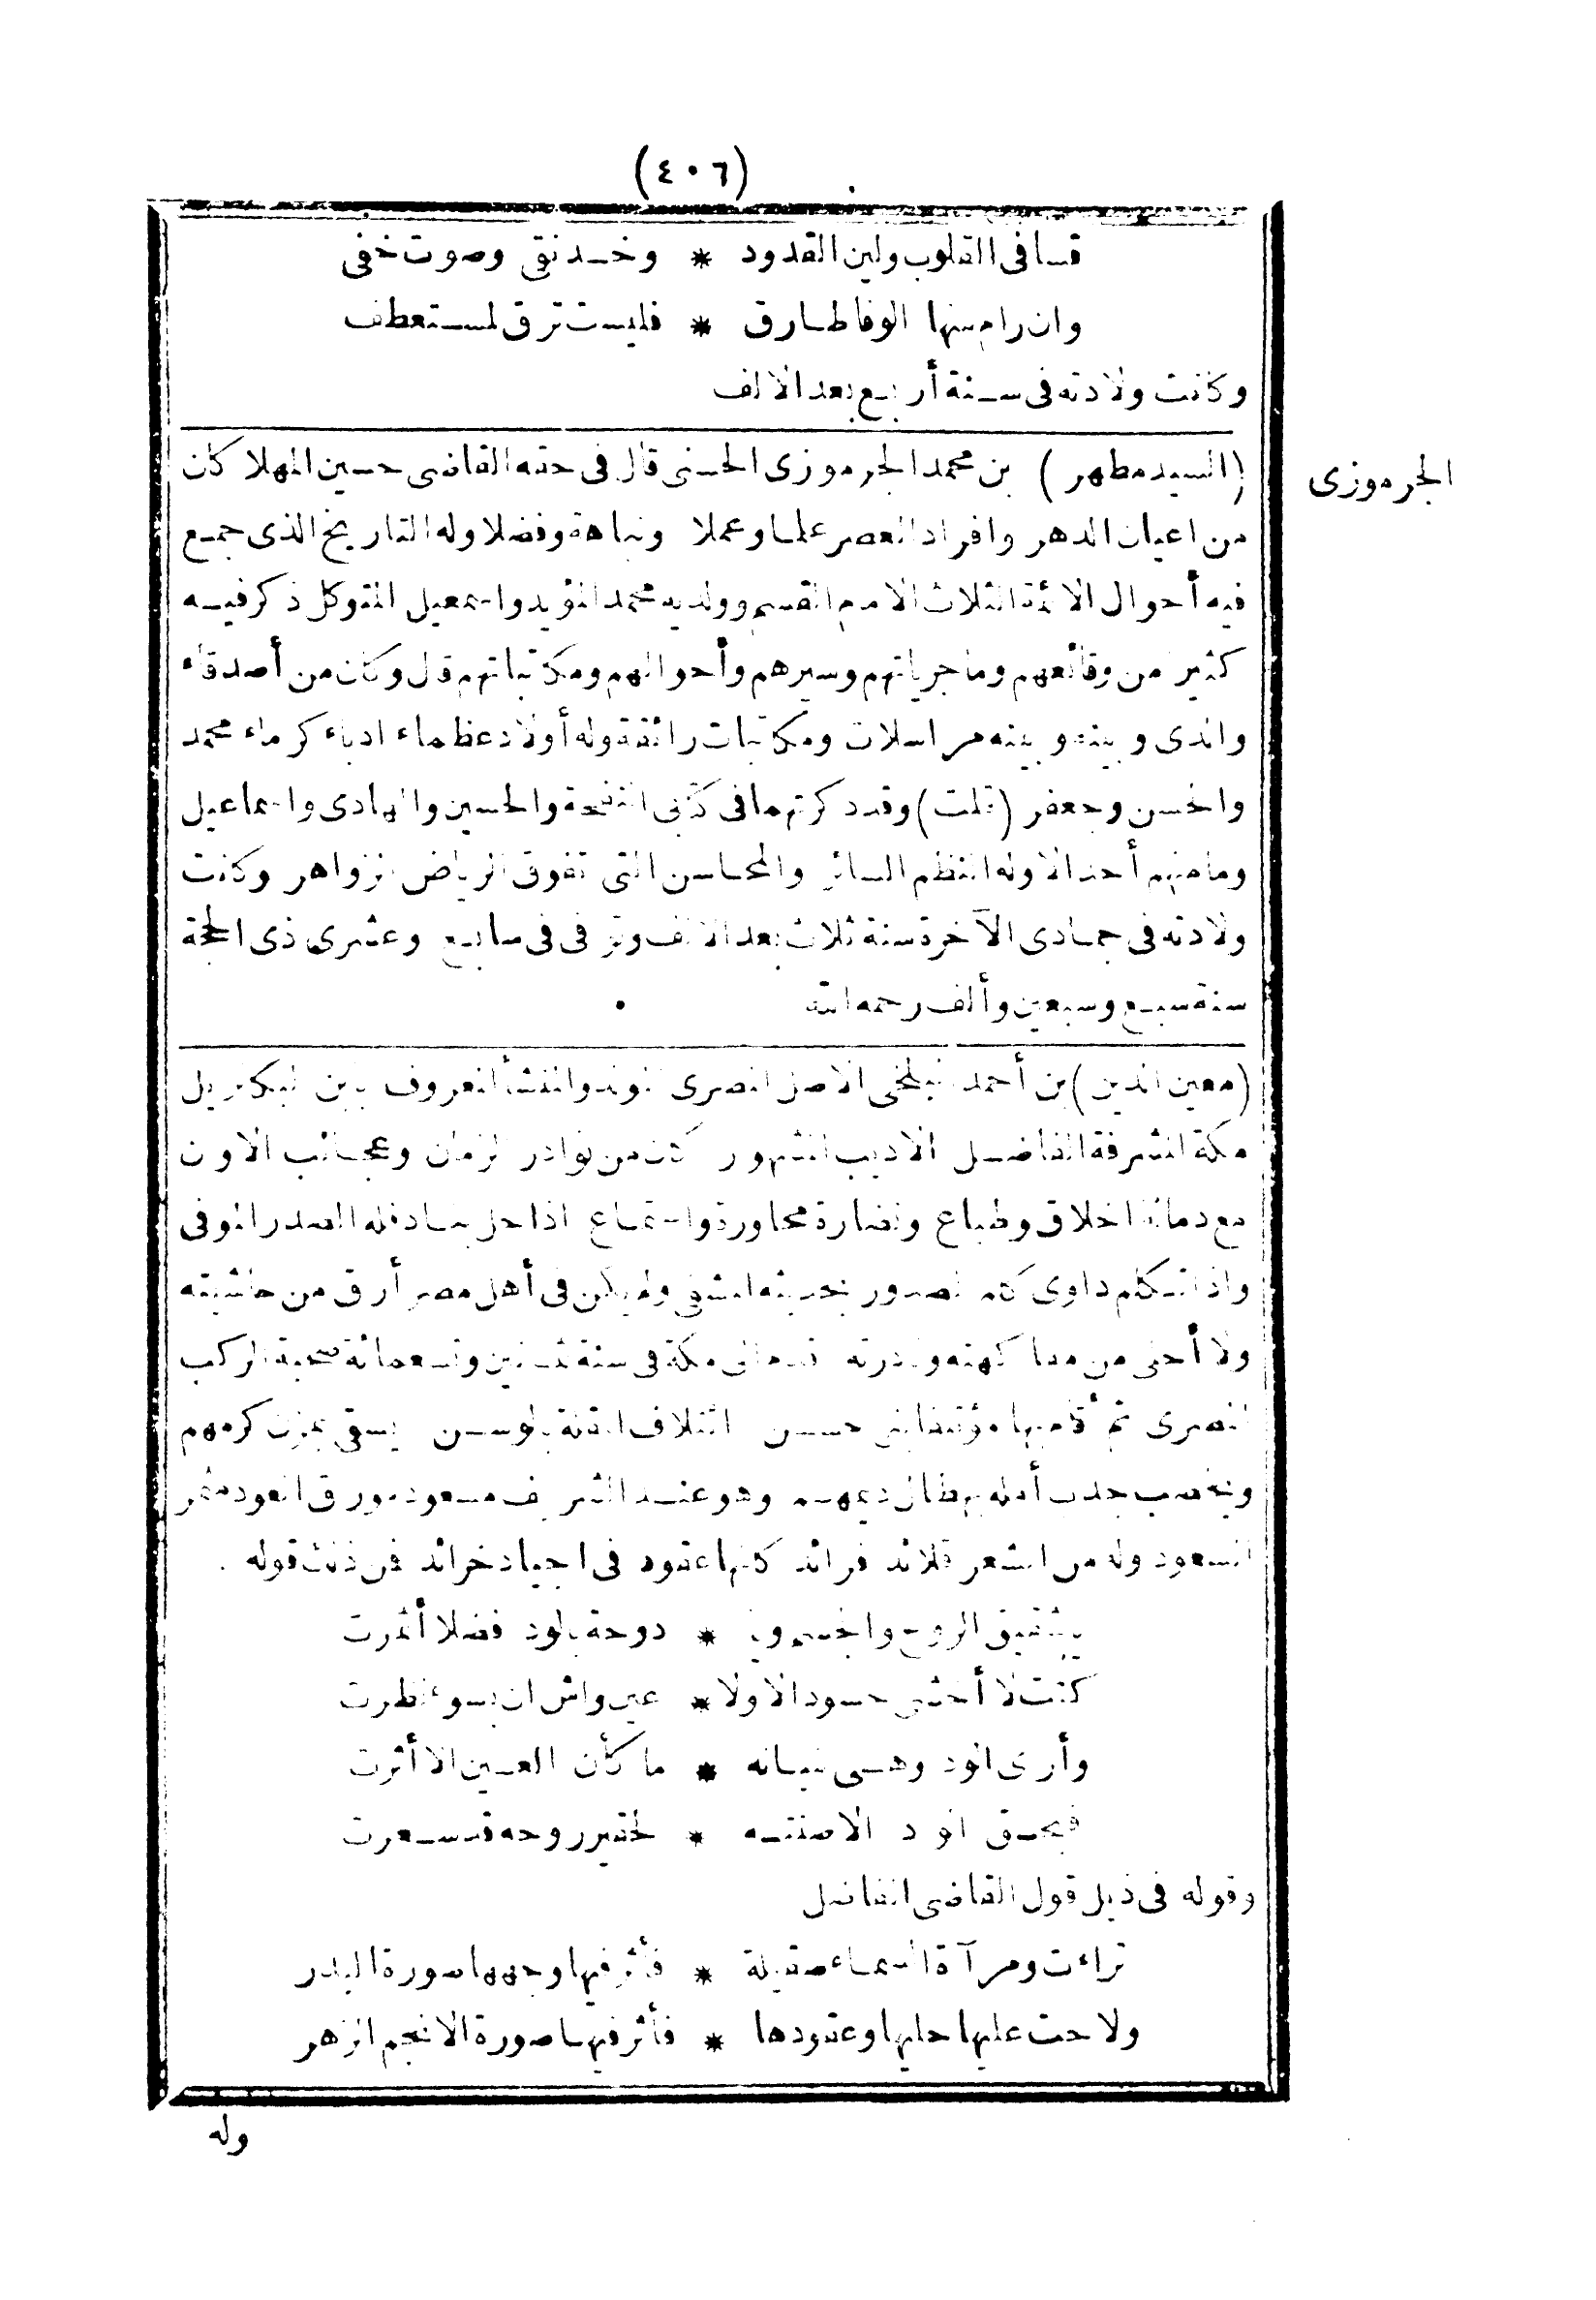 (٤٠٦)
قسا فى القلوب ولين القدود * وخد نقى وصوت خفى
وان رام منها الوفا طارق * فليست ترق لمستعطف
وكانت ولادته فى سنة أربع بعد الالف
(السيد مطهر) بن محمد الجرموزى الحسنى قال فى حقه القاضى حسين المهلا كان
الجرموزى
من اعيان الدهر وافراد العصر علما وعملا ونباهة وفضلا وله التاريخ الذى جمع
فيه أحوال الائمة الثلاث الامام القسم وولديه محمد المؤيد واسمعيل المتوكل ذكر فيه
كثيرا من وقائعهم وماجرياتهم وسيرهم وأحوالهم ومكاتباتهم قال وكان من أصدقاء
والدى وبينه وبينه مراسلات ومكاتبات رائقة وله أولاد عظماء ادباء كرماء محمد
والحسن وجعفر (قلت) وقد ذكرتهما فى كتابى النفحة والحسين والهادى واسماعيل
وما منهم أحد الا وله النظم السائر والمحاسن التى تفوق الرياض الزواهر وكانت
ولادته فى جمادى الآخرة سنة ثلاث بعد الالف وتوفى فى سابع وعشرى ذى الحجة
سنة سبع وسبعين وألف رحمه الله
(معين الدين) بن أحمد البلخى الاصل المصرى المولد والمنشأ المعروف بابن البكا نزيل
مكة المشرفة الفاضل الاديب المشهور كان من نوادر الزمان وعجائب الاوان
مع دماثة اخلاق وطباع ونضارة محاورة واستماع اذا حل بناد فله الصدر الموفى
واذا تكلم داوى كلم الصدور بحديثه المشفى ولم يكن فى أهل مصر أرق من حاشيته
ولا أحلى من مفاكهته ونادرته قدم الى مكة فى سنة ثمانين وتسعمائة صحبة الركب
المصرى ثم أقام بها مؤتلفا بنى حسن ائتلاف المقلة بالوسن يسقى بمزن كرمهم
ويخصب جدب أمله بهطال ديمهم وهو عند الشريف مسعود مورق العود مثمر
السعود وله من الشعر قلائد فرائد كانها عقود فى اجياد خرائد فمن ذلك قوله
يا شقيق الروح والجسم ويا * دوحة بالود فضلا أثمرت
كنت لا أخشى حسودا لا ولا * عين واش ان بسوء نظرت
وأرى الود وهى بنيانه * ما كأن العين الا أثرت
فبحق الود الا صنته * لحقير روحه قد سعرت
وقوله فى ذيل قول القاضى الفاضل
تراءت ومرآة السماء صقيلة * فأثر فيها وجهها صورة البدر
ولاحت عليها حليها وعقودها * فأثر فيها صورة الانجم الزهر
وله